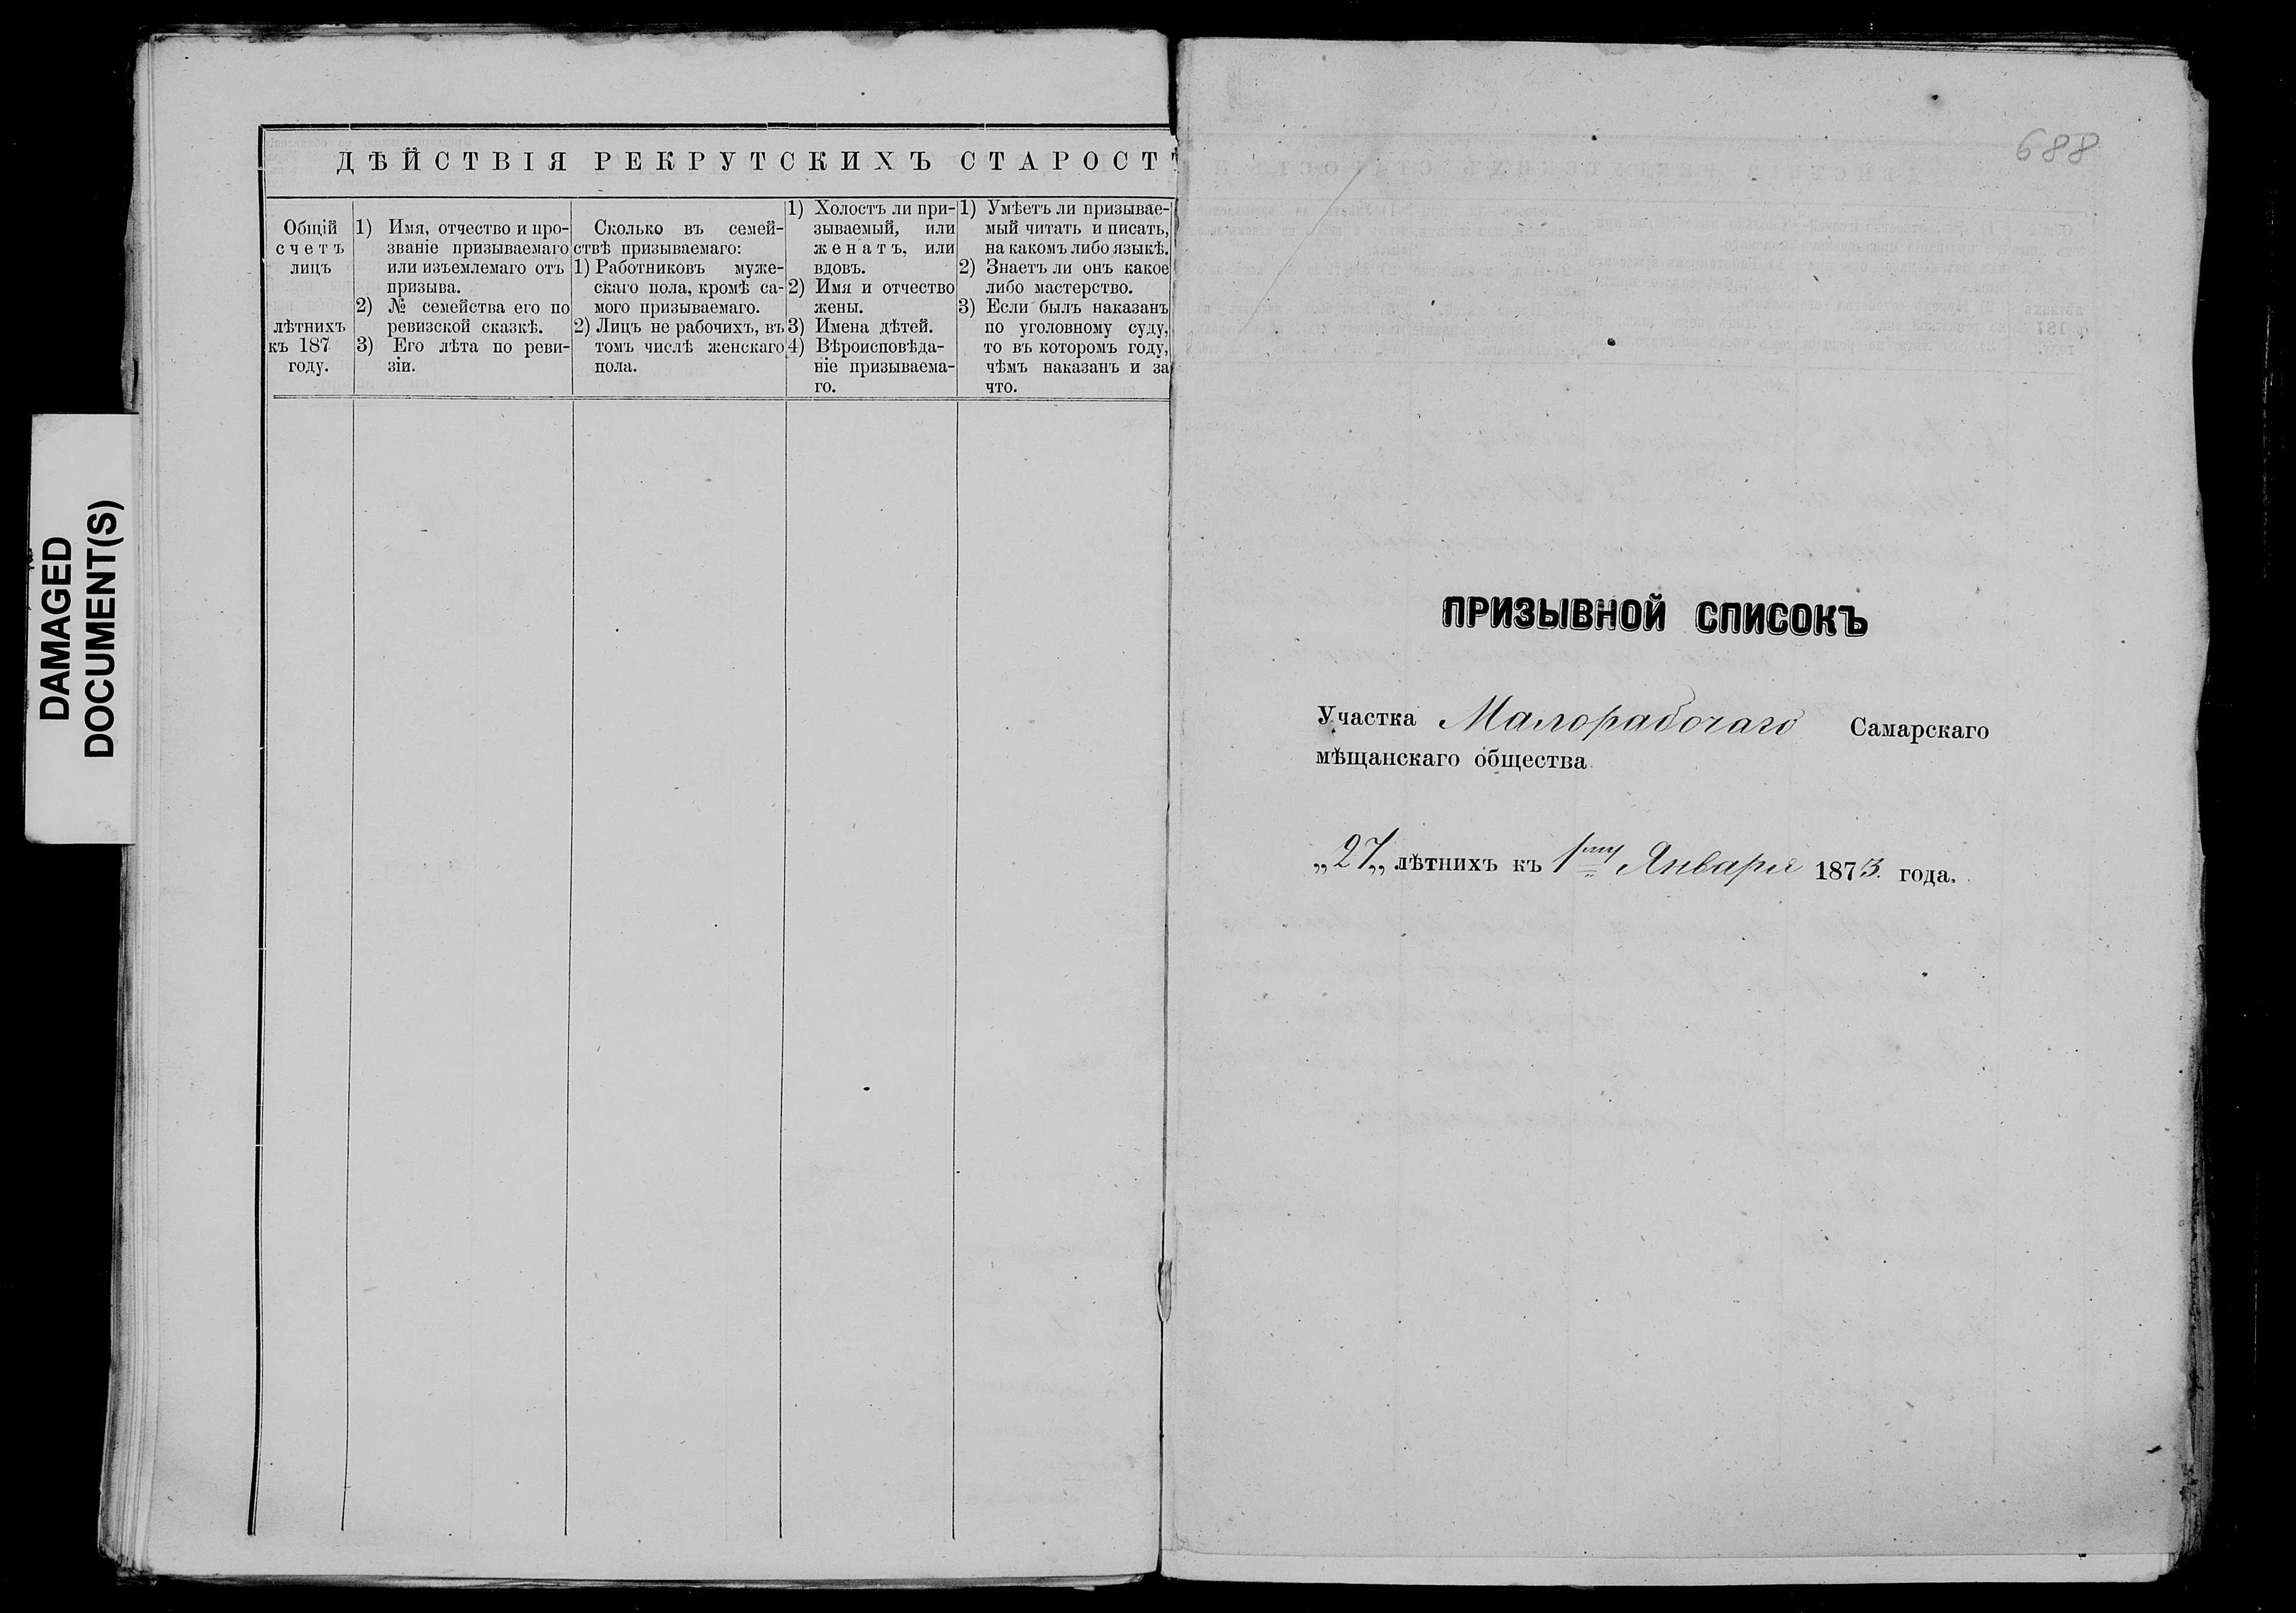 ДѢЙСТВІЯ РЕКРУТСКИХЪ СТАРОСТ
Общій
счетъ
лицъ
лѣтнихъ
къ 187
году.
1) Имя, отчество и про-
званіе призываемаго
или изъемлемаго отъ
призыва.
2) № семейства его по
ревизской сказкѣ.
3) Его лѣта по реви-
зіи.
Сколько въ семей-
ствѣ призываемаго:
1) Работниковъ муже-
скаго пола, кромѣ са-
мого призываемаго.
2) Лицъ не рабочихъ, въ
томъ числѣ женскаго
пола.
1) Холостъ ли при-
зываемый, или
женатъ, или
вдовъ.
2) Имя и отчество
жены.
3) Имена дѣтей.
4) Вѣроисповѣда-
ніе призываема-
го.
1) Умѣетъ ли призывае-
мый читать и писать,
на какомъ либо языкѣ.
2) Знаетъ ли онъ какое
либо мастерство.
3) Если былъ наказанъ
по уголовному суду,
то въ которомъ году,
чѣмъ наказанъ и за
что.
DAMAGED
DOCUMENT(S)
688
ПРИЗЫВНОЙ СПИСОКЪ
Участка Малорабочаго Самарскаго
мѣщанскаго общества
„27„ лѣтнихъ къ 1му Января 1873 года.